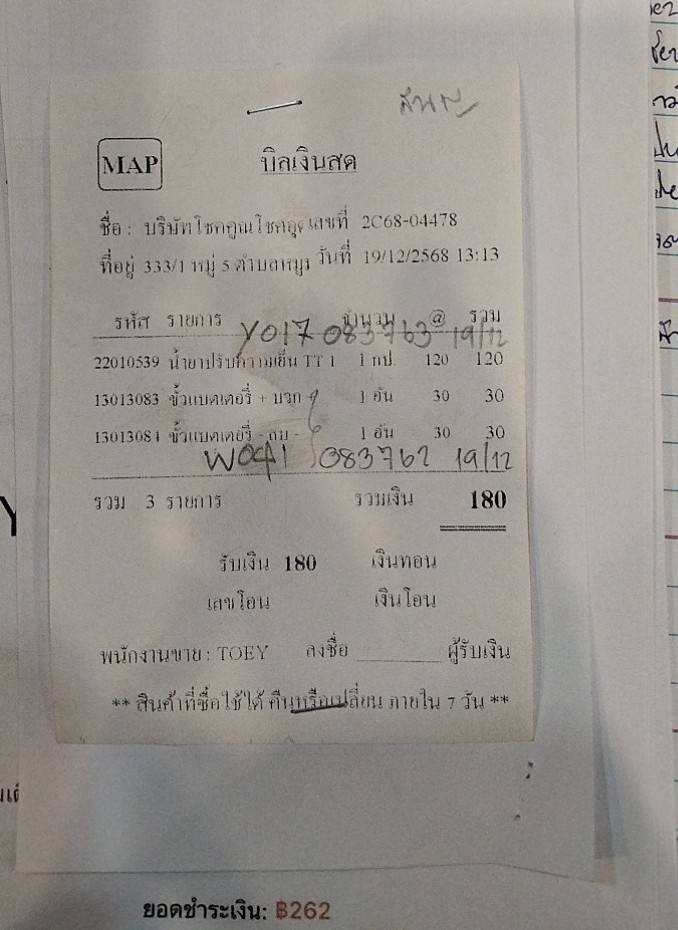 MAP
บิลเงินสด
ชื่อ : บริษัทโชคคูณโชคอุ เลขที่ 2C68-04478
ที่อยู่ 333/1 หมู่ 5 ตำบล วันที่ 19/12/2568 13:13
รหัส รายการ จำนวน @ รวม
Y017 083763 19/12
22010539 น้ำยาปรับความเย็น TT 1 1 กป. 120 120
13013083 ขั้วแบตเตอรี่ + บวก 1 อัน 30 30
13013084 ขั้วแบตเตอรี่ - ลบ - 1 อัน 30 30
083762 19/12
รวม 3 รายการ รวมเงิน 180
รับเงิน 180 เงินทอน
เลขโอน เงินโอน
พนักงานขาย : TOEY ลงชื่อ ผู้รับเงิน
** สินค้าที่ซื้อใช้ได้ คืนหรือเปลี่ยน ภายใน 7 วัน **
ยอดชำระเงิน: ฿262